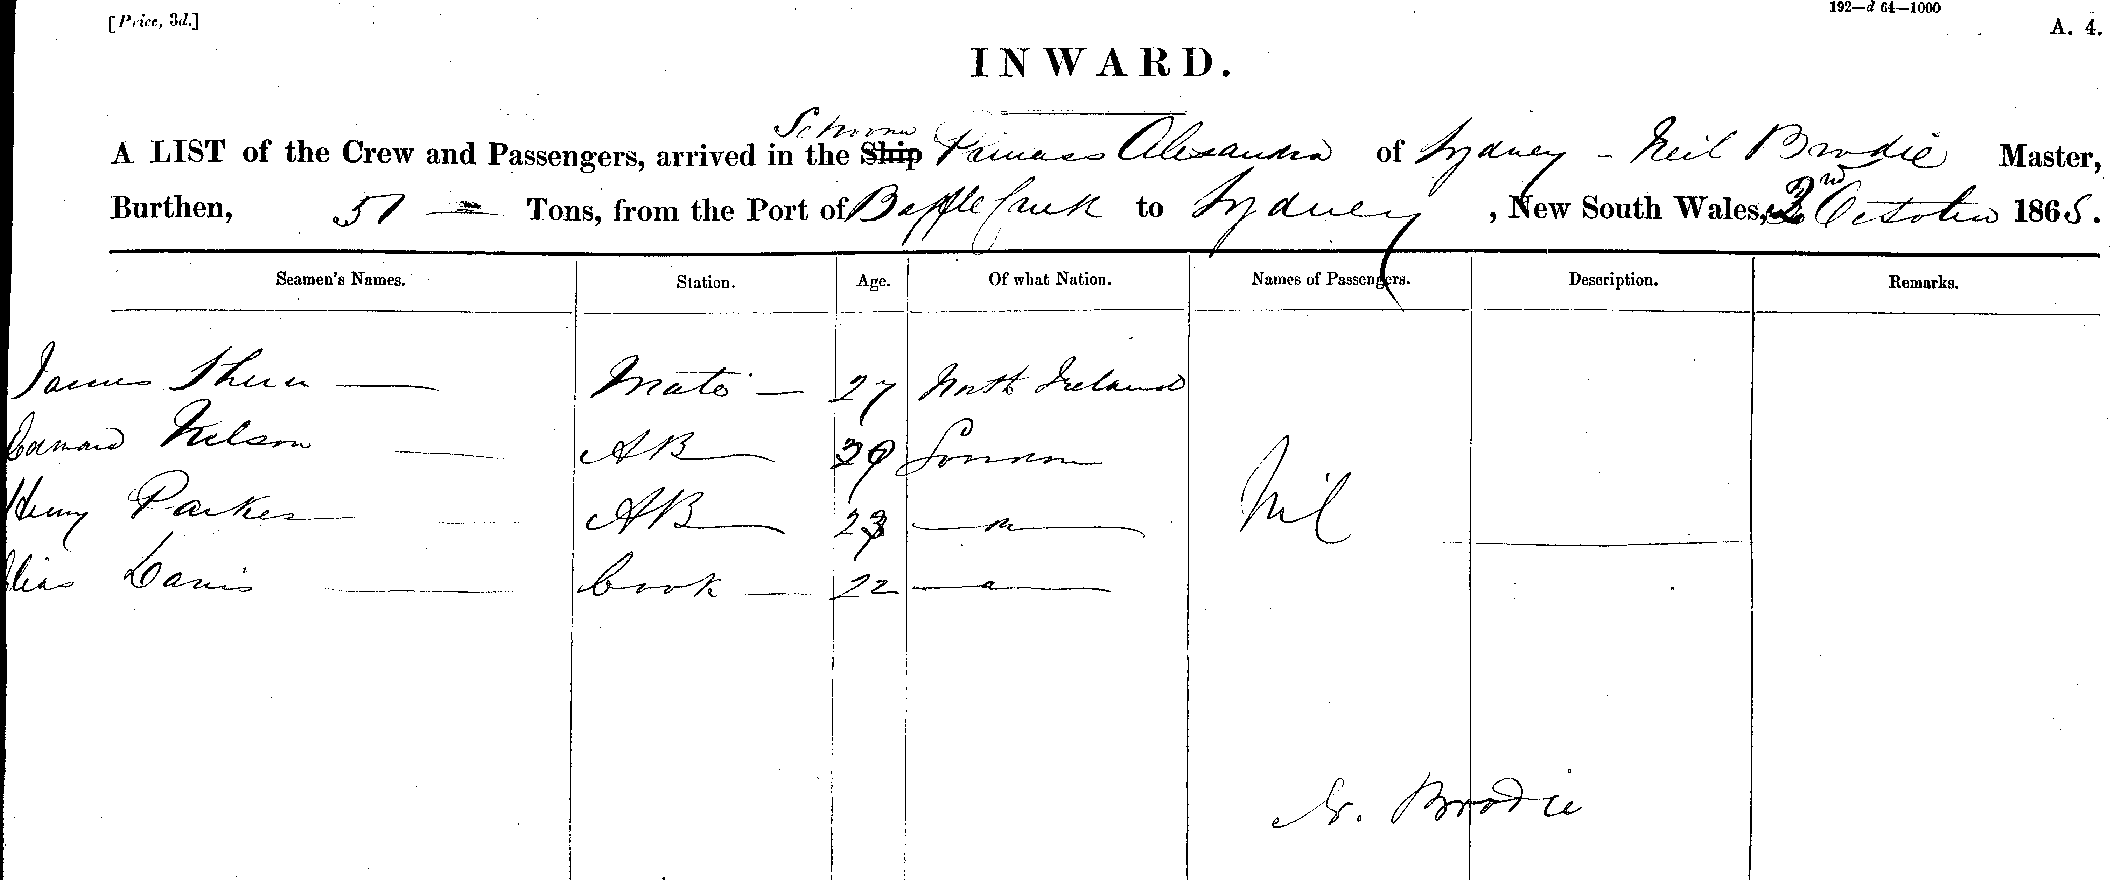 [Price, 3d.]
192—d 64—1000
A. 4.
INWARD.
Schooner
A LIST of the Crew and Passengers, arrived in the Ship Princess Alexandra of Sydney - Neil Brodie Master,
Burthen, 51 — Tons, from the Port of Baffle Creek to Sydney, New South Wales, October 1865.
Seamen's Names. Station. Age. Of what Nation. Names of Passengers. Description. Remarks.
James — Mate — 27 North Ireland
Edward Nelson — AB London
Henry Parker — AB 23 Nil
Elias Davis — Cook — 22
N. Brodie